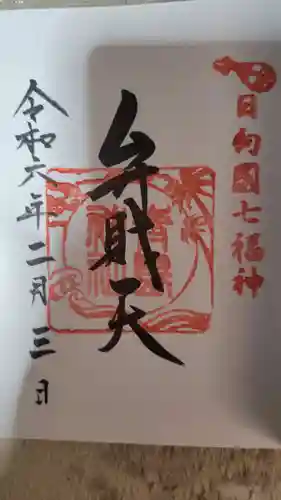 日向國七福神
弁財天
青島神社
令和六年二月三日